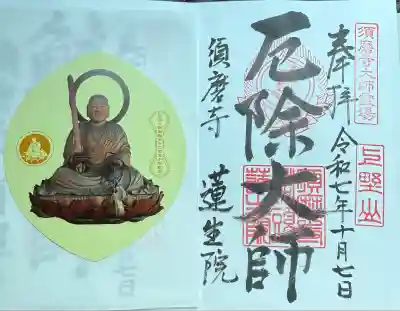 奉拝
令和七年十月七日
厄除大師
須磨寺 蓮生院
須磨寺大師霊場